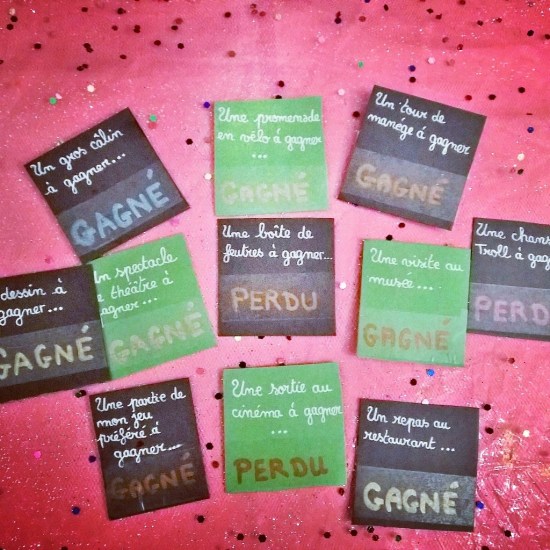 Un gros câlin
à gagner...
GAGNÉ
Une promenade
en vélo à gagner
...
GAGNÉ
Un tour de
manége à gagner
GAGNÉ
dessin à
gagner...
GAGNÉ
Un spectacle
de théâtre à
gagner...
GAGNÉ
Une boîte de
feutres à gagner...
PERDU
Une visite au
musee...
GAGNÉ
Une chans
Troll à gag
PERD
Une partie de
mon jeu
préféré à
gagner...
GAGNÉ
Une sortie au
cinéma à gagner
...
PERDU
Un repas au
restaurant...
GAGNÉ